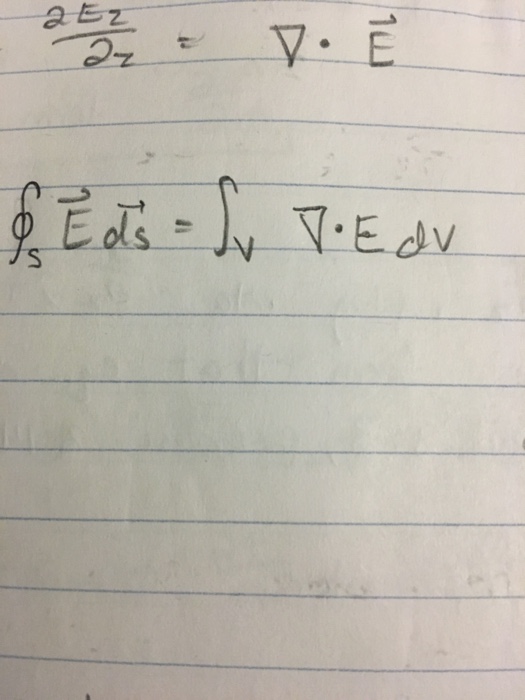 ∂Ez/∂z = ∇ · E⃗
∮s E⃗ ds⃗ = ∫v ∇·E dV